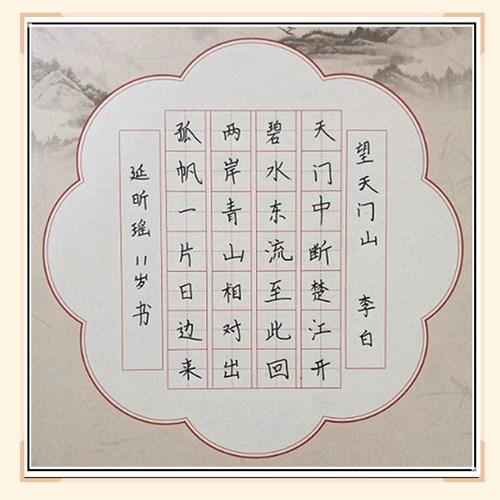 望天门山 李白
天门中断楚江开
碧水东流至此回
两岸青山相对出
孤帆一片日边来
延昕瑶 11岁 书